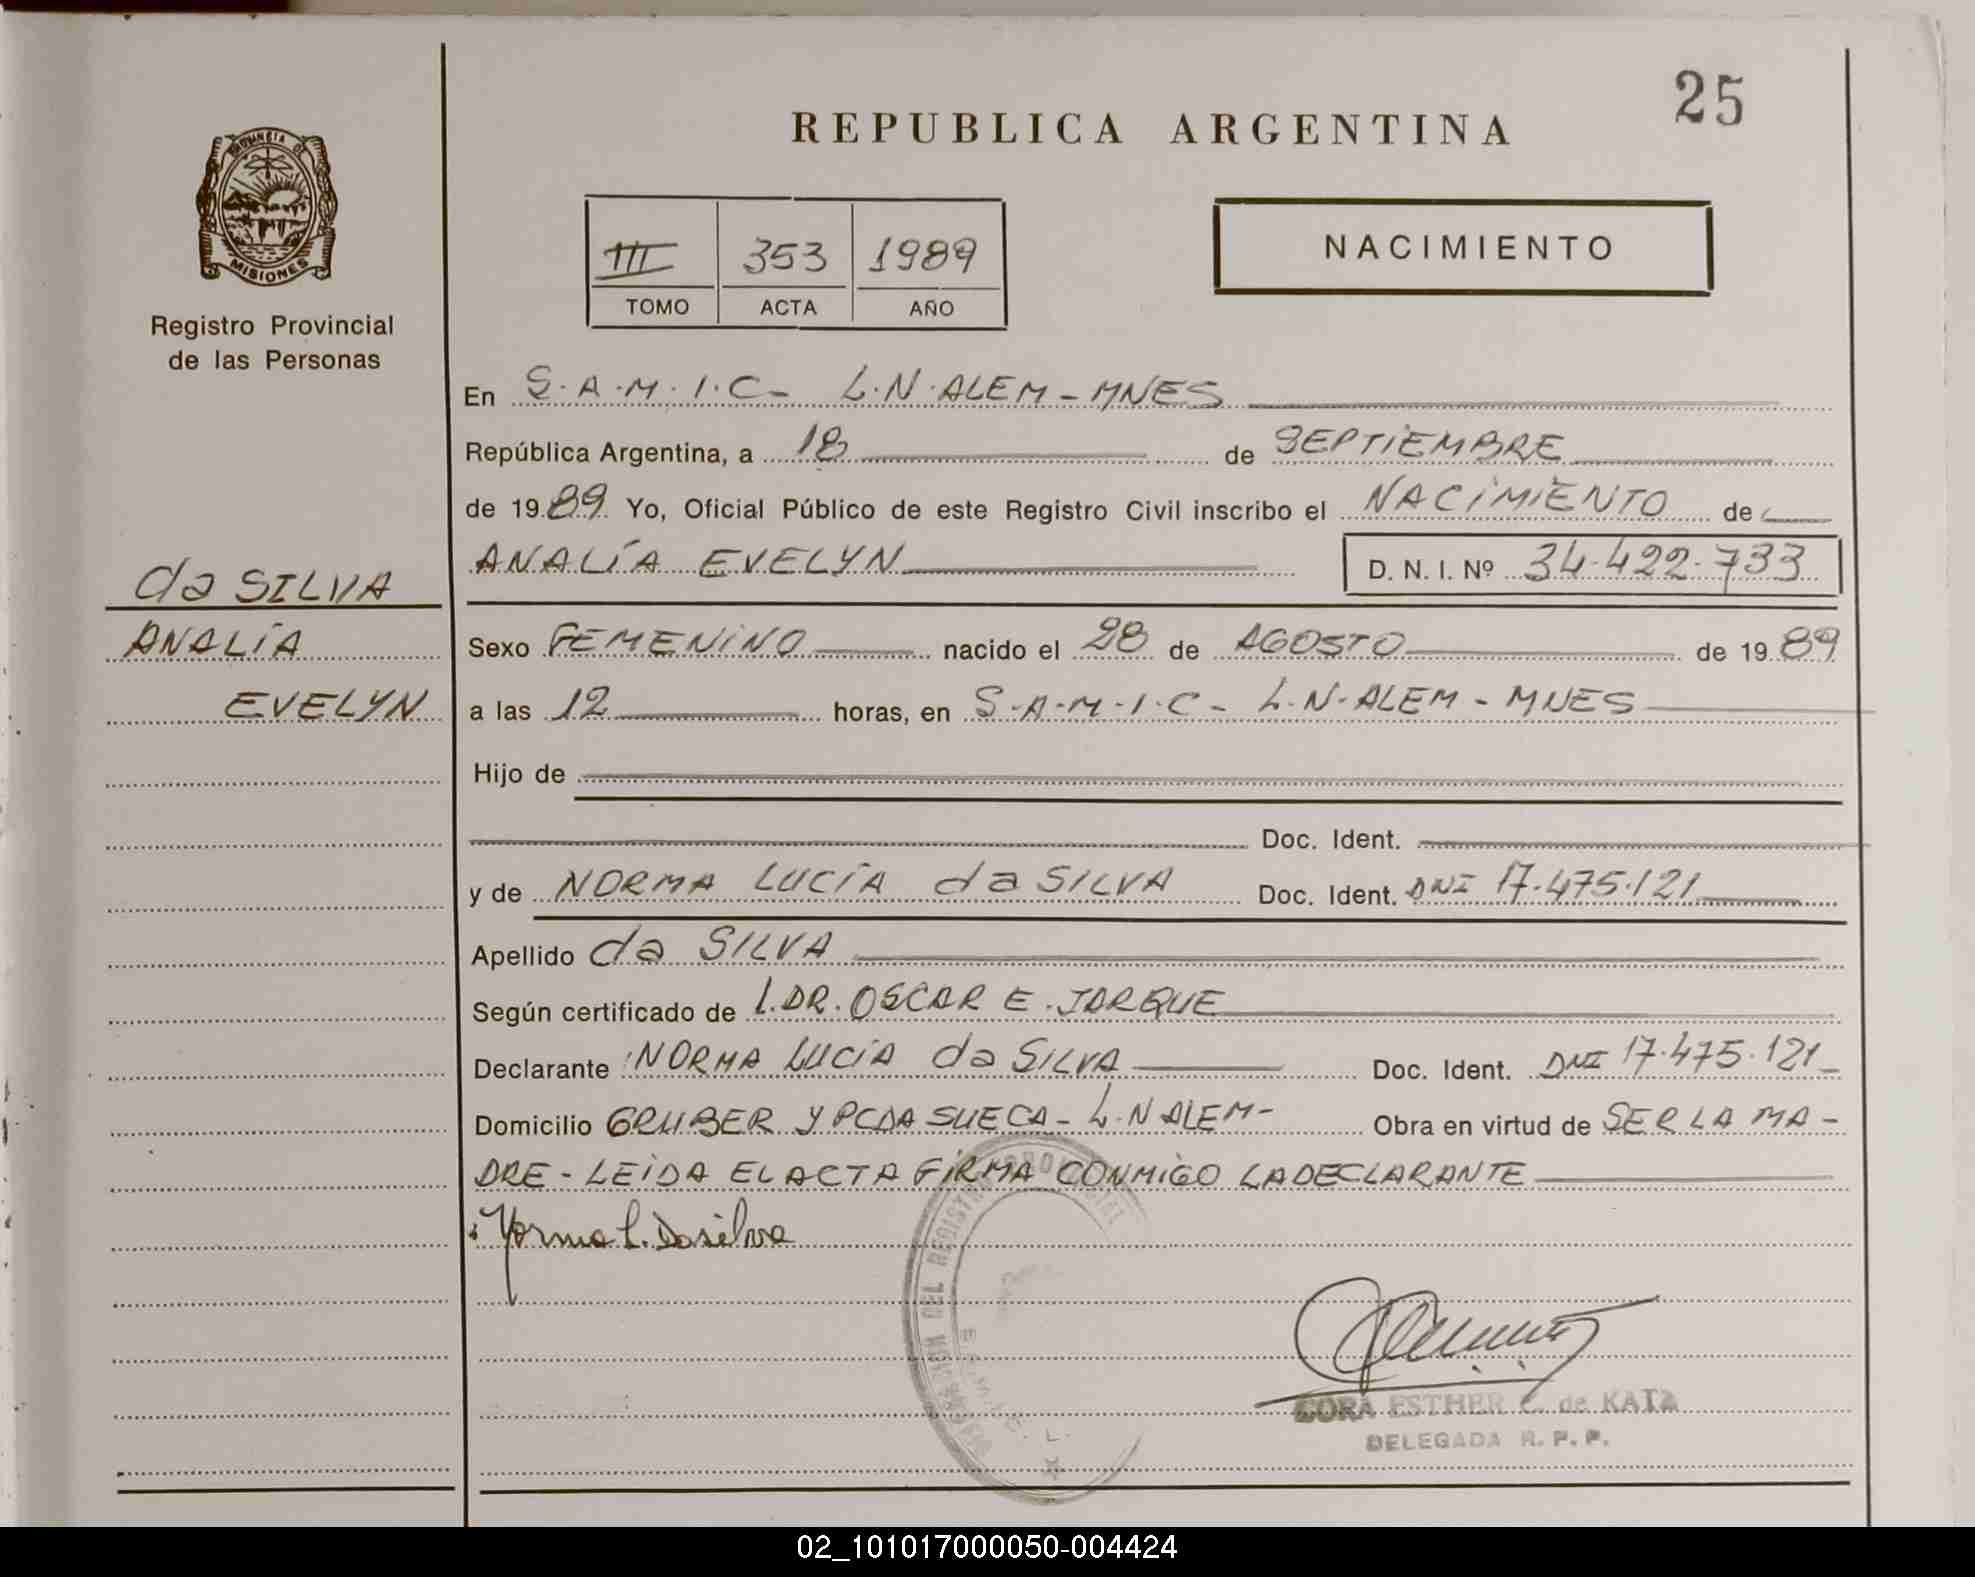 25
REPUBLICA ARGENTINA
PROVINCIA DE
MISIONES
Registro Provincial
de las Personas
III 353 1989
TOMO ACTA AÑO
NACIMIENTO
En S.A.M.I.C- L.N.ALEM-MNES
República Argentina, a 18 de SEPTIEMBRE
de 1989 Yo, Oficial Público de este Registro Civil inscribo el NACIMIENTO de
ANALÍA EVELYN D. N. I. Nº 34.422.733
da SILVA
ANALÍA
EVELYN
Sexo FEMENINO nacido el 28 de AGOSTO de 1989
a las 12 horas, en S.A.M.I.C- L.N.ALEM-MNES
Hijo de
Doc. Ident.
y de NORMA LUCÍA da SILVA Doc. Ident. DNI 17.475.121
Apellido da SILVA
Según certificado de L.DR.OSCAR E. JARQUE
Declarante NORMA LUCÍA da SILVA Doc. Ident. DNI 17.475.121
Domicilio GRUBER Y PCDA SUECA- L.N ALEM- Obra en virtud de SER LA MA-
DRE-LEIDA EL ACTA FIRMA CONMIGO LA DECLARANTE
Norma L. Dasilva
DEL REGISTRO PROVINCIAL
CORA ESTHER C. de KATZ
DELEGADA R. P. P.
02_101017000050-004424